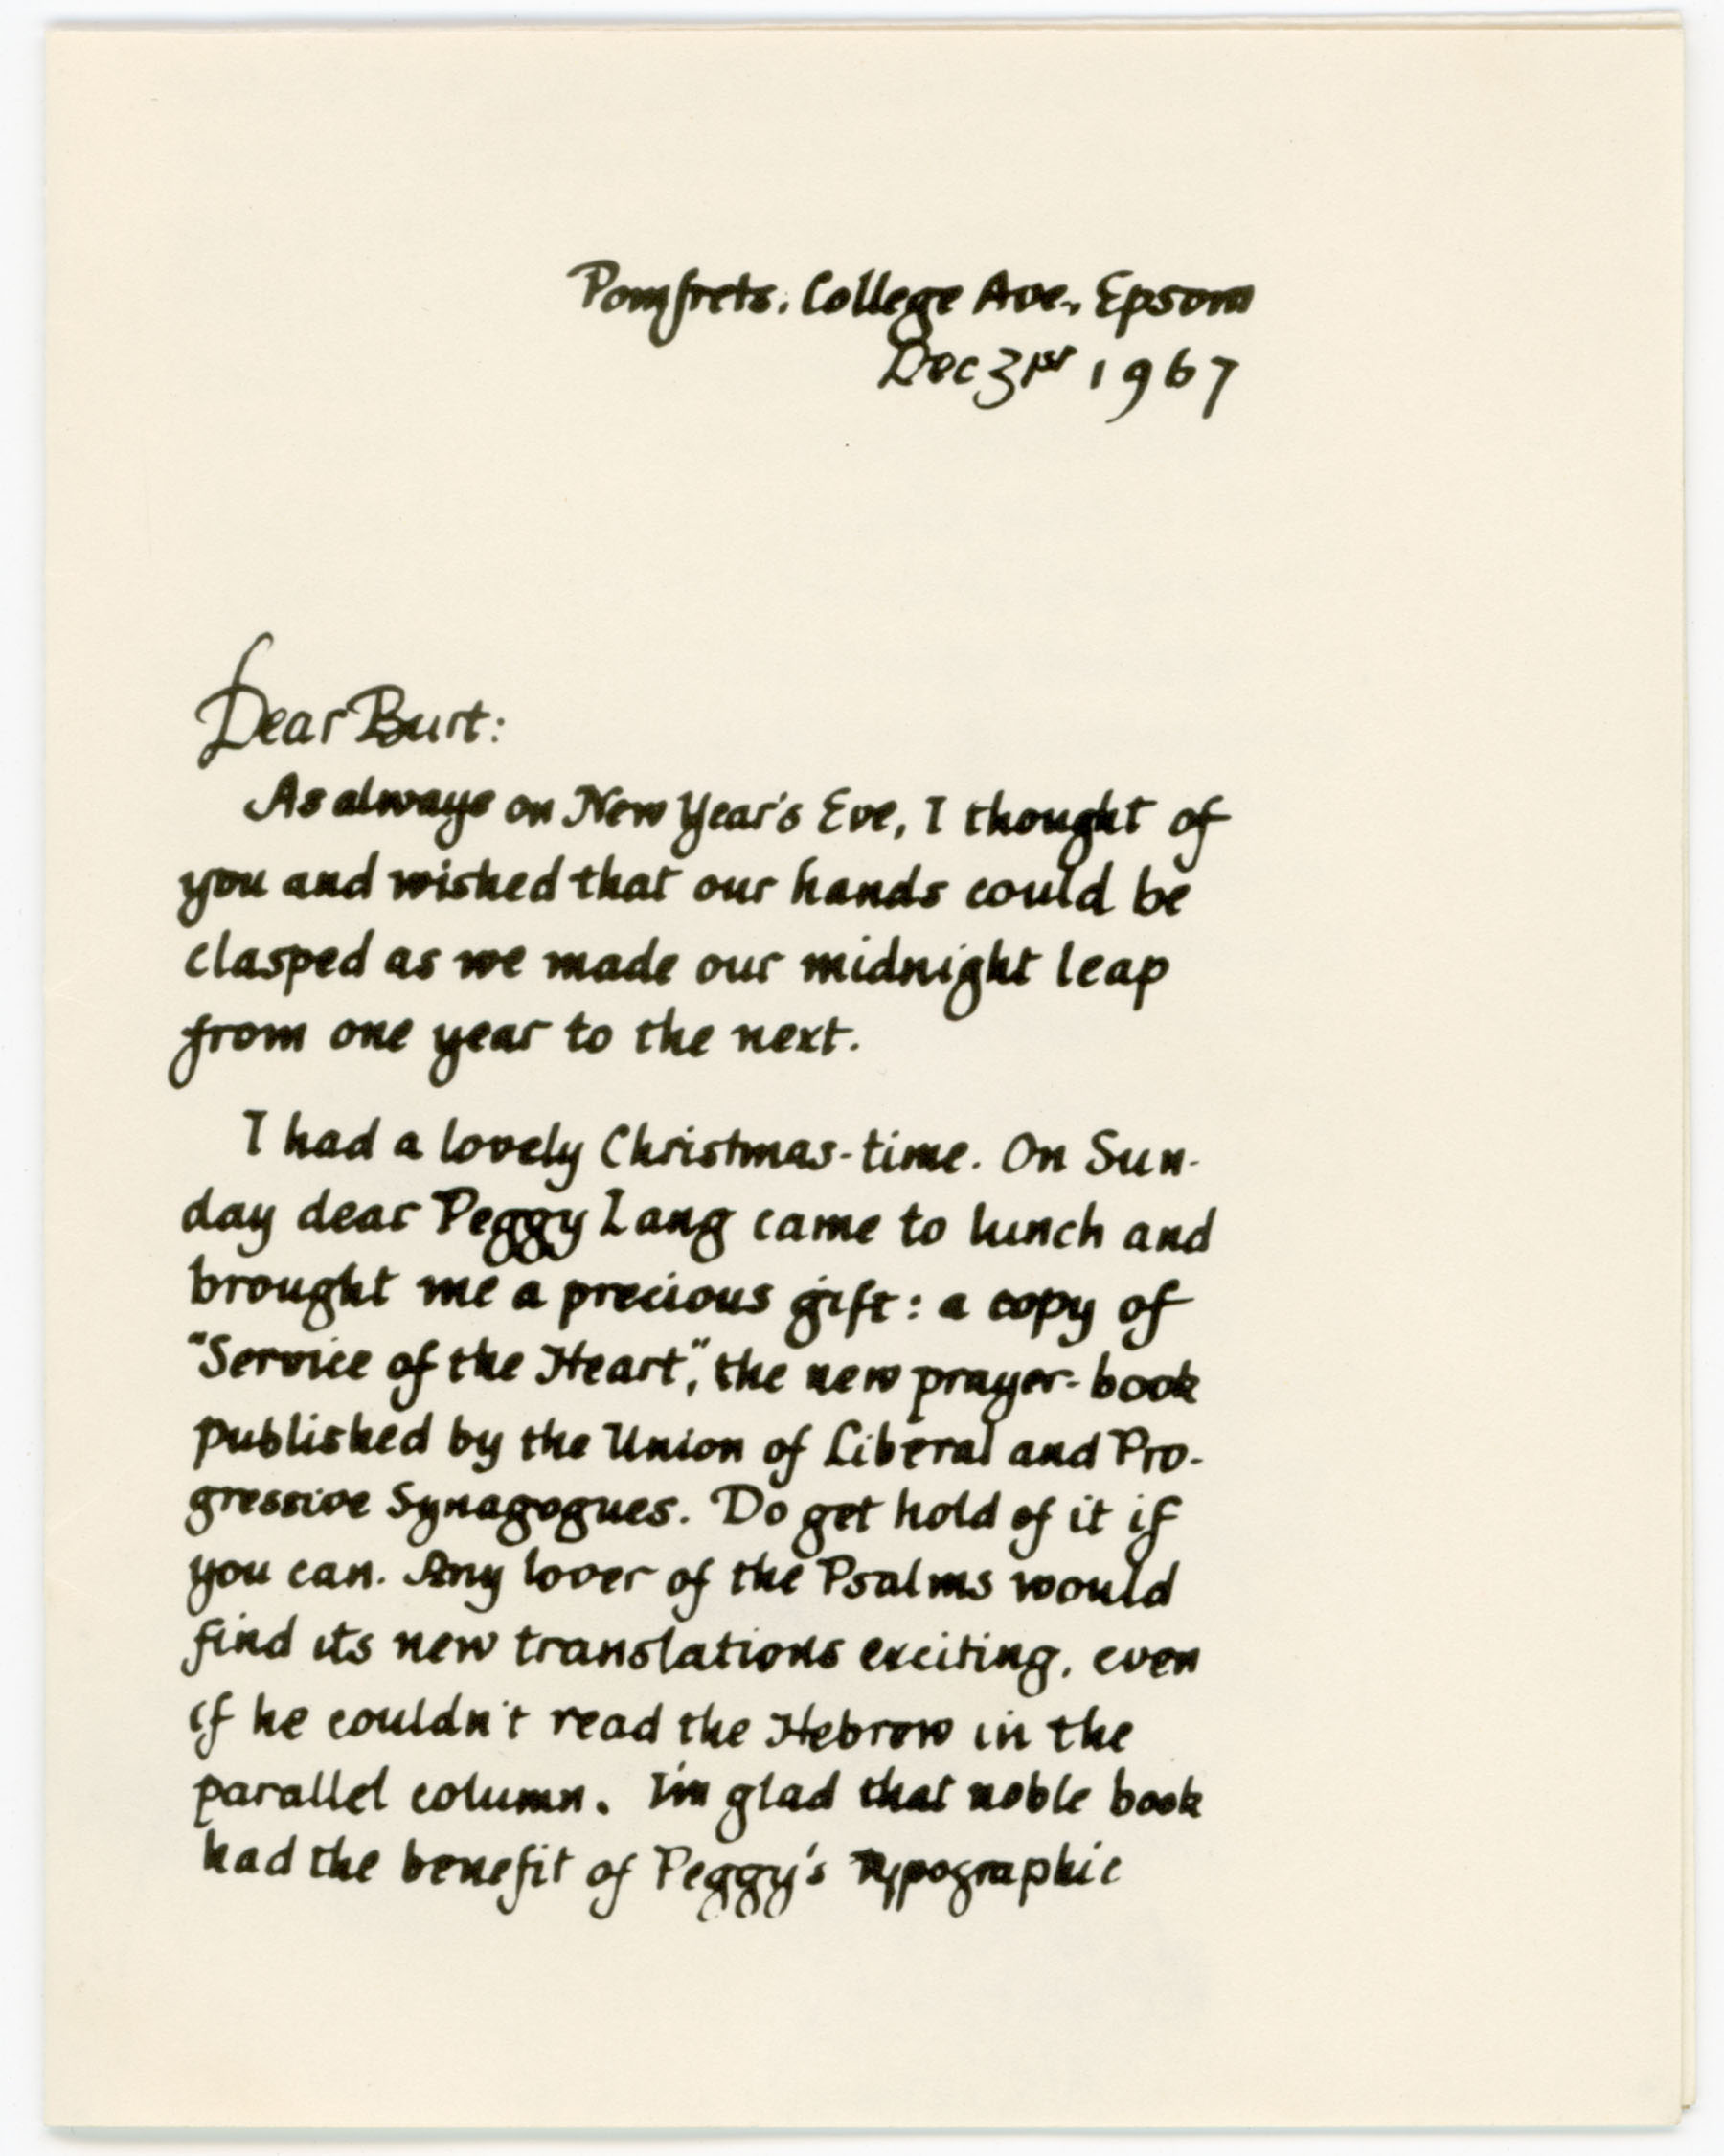 Pomfrets. College Ave., Epsom
Dec 31st 1967
Dear Burt:
As always on New Year's Eve, I thought of
you and wished that our hands could be
clasped as we made our midnight leap
from one year to the next.
I had a lovely Christmas-time. On Sun-
day dear Peggy Lang came to lunch and
brought me a precious gift: a copy of
"Service of the Heart", the new prayer-book
published by the Union of Liberal and Pro-
gressive Synagogues. Do get hold of it if
you can. Any lover of the Psalms would
find its new translations exciting, even
if he couldn't read the Hebrew in the
parallel column. I'm glad that noble book
had the benefit of Peggy's typographic